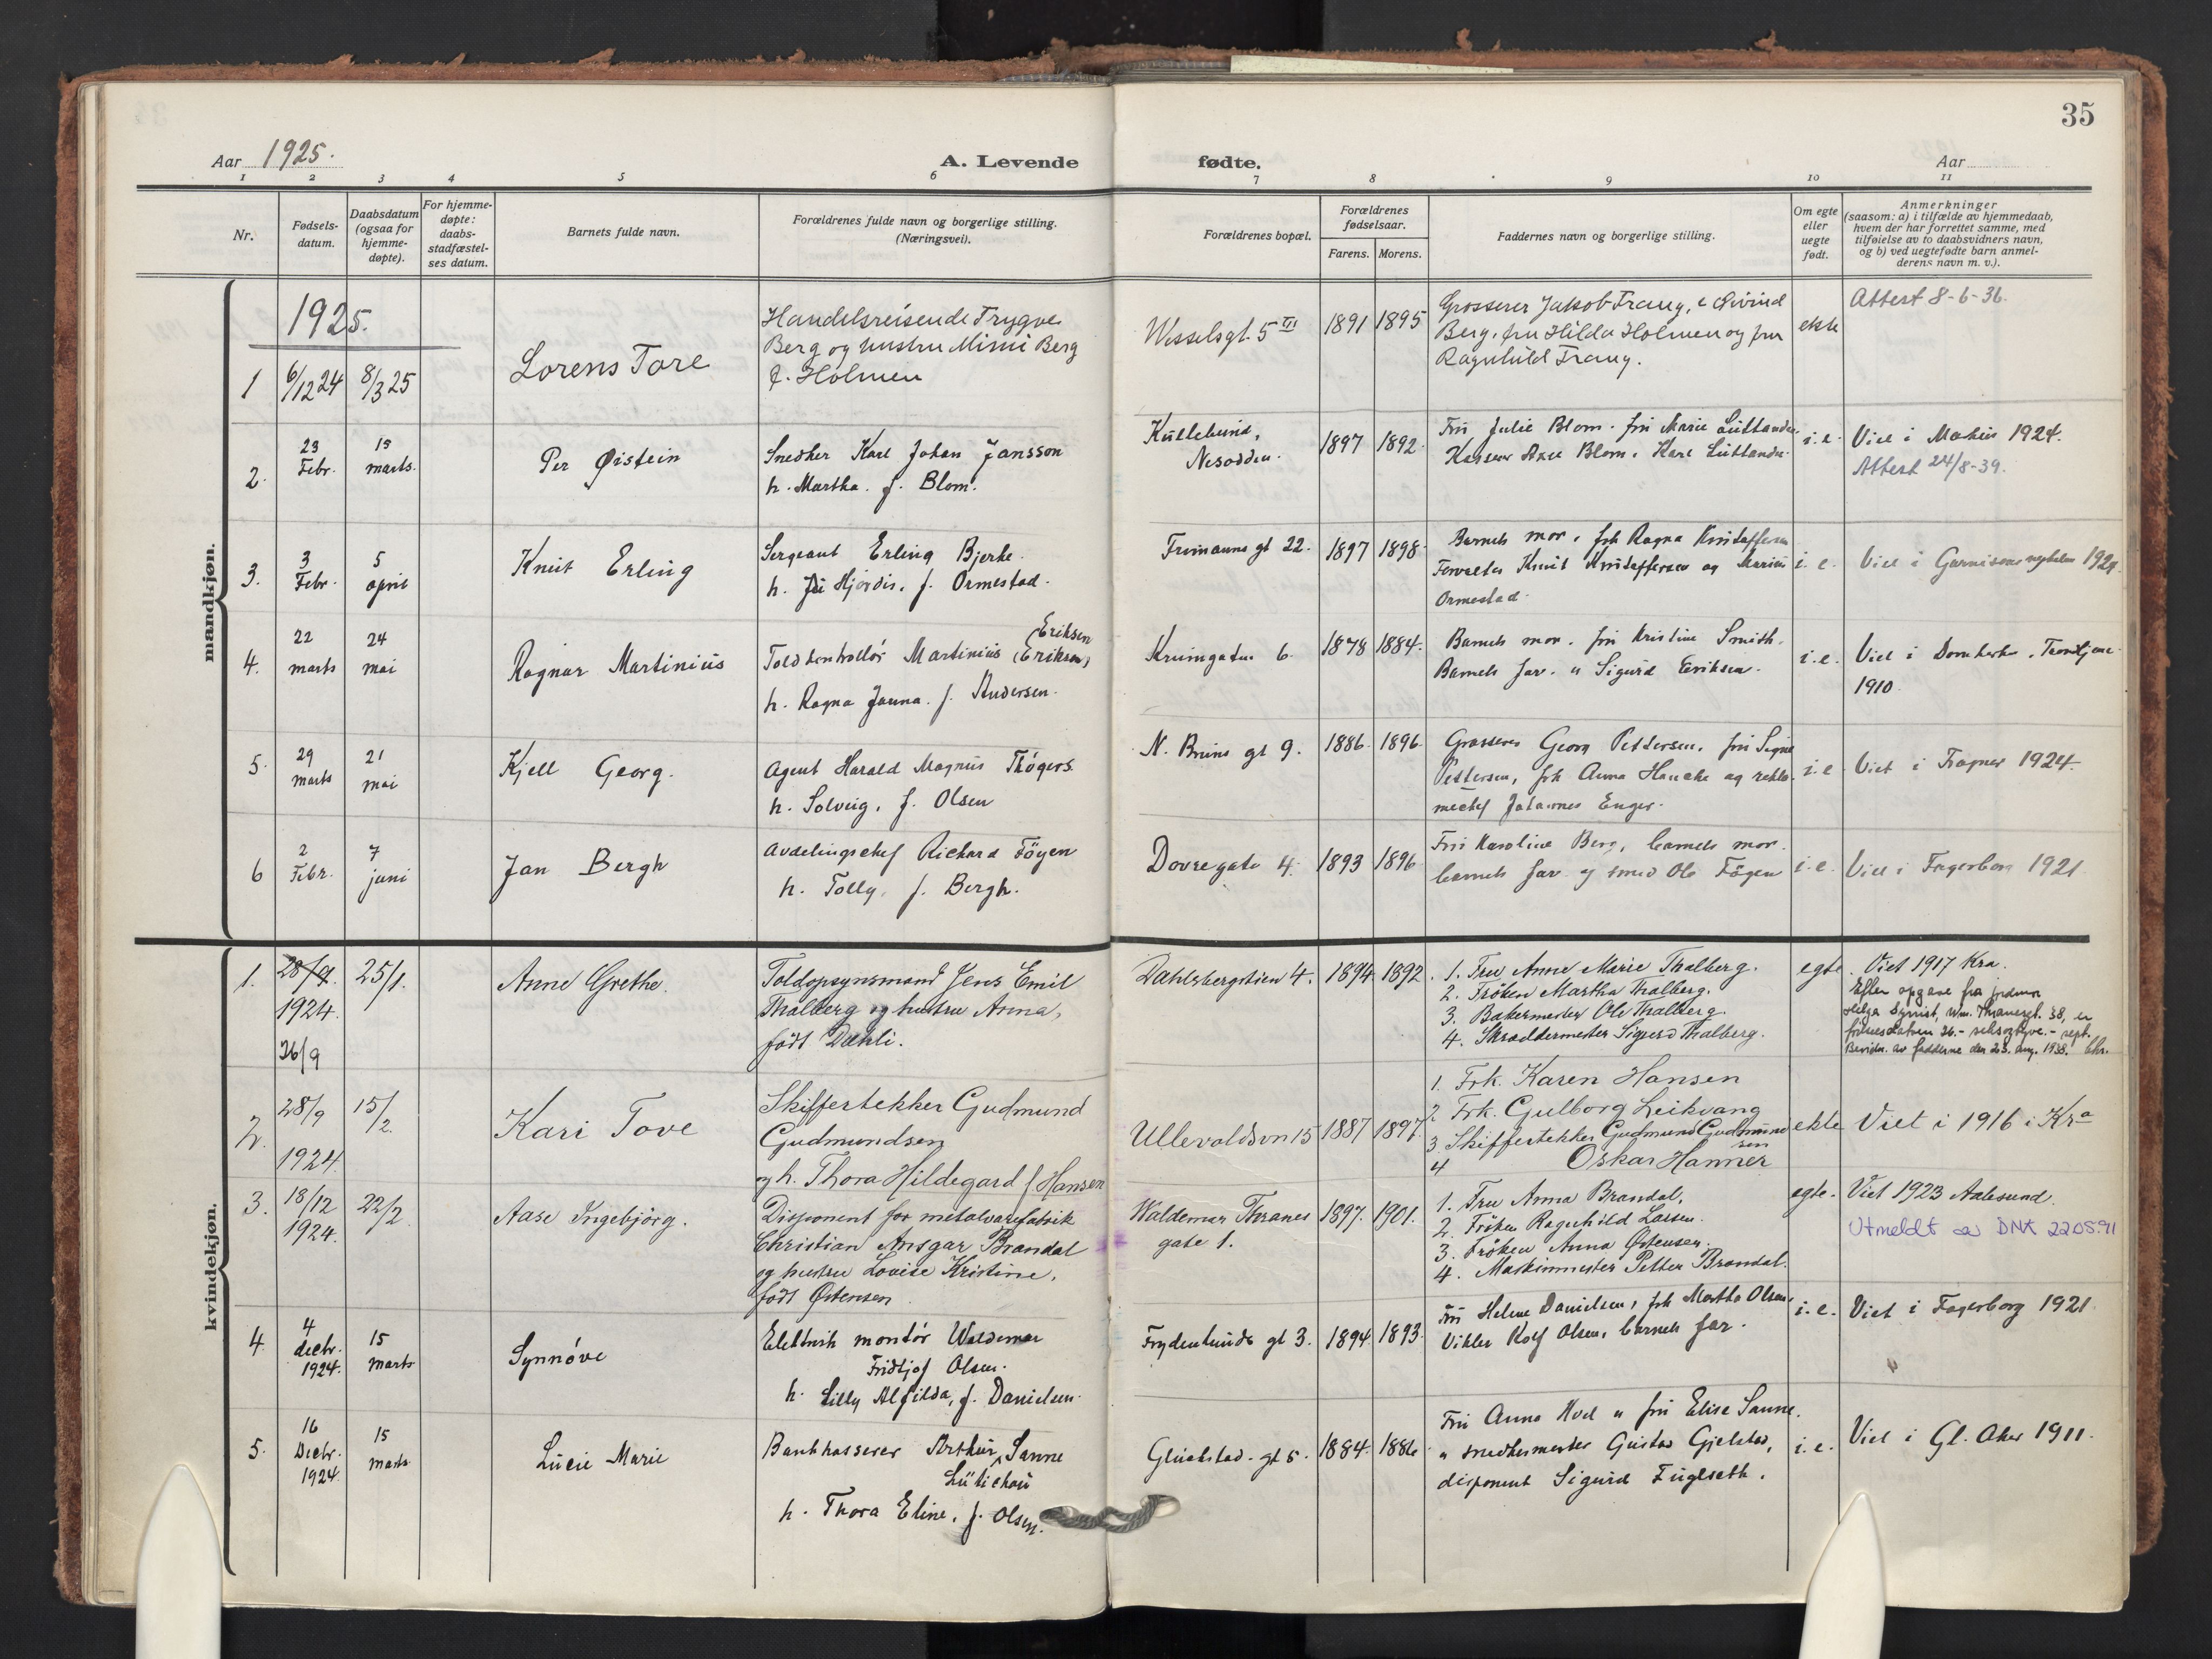 35
Aar 1925.
A. Levende fødte.
Aar
1 2 3 4 5 6 7 8 9 10 11
Nr.
Fødsels-
datum.
Daabsdatum
(ogsaa for
hjemme-
døpte).
For hjemme-
døpte:
daabs-
stadfæstel-
ses datum.
Barnets fulde navn.
Forældrenes fulde navn og borgerlige stilling.
(Næringsvei).
Forældrenes bopæl.
Forældrenes
fødselsaar.
Farens. Morens.
Faddernes navn og borgerlige stilling.
Om egte
eller
uegte
født.
Anmerkninger
(saasom: a) i tilfælde av hjemmedaab,
hvem der har forrettet samme, med
tilføielse av to daabsvidners navn,
og b) ved uegtefødte barn anmel-
derens navn m. v.).
mandkjøn.
1925.
1
6/12 24
8/3 25
Lorens Tore
Handelsreisende Trygve
Berg og hustru Mimi Berg
f. Holmen
Wesselsgt. 5 III
1891
1895
Grosserer Jakob Trang, Øivind
Berg, fru Hilda Holmen og fru
Ragnhild Trang.
ekte
Attest 8-6-36.
2.
23
Febr.
15
marts.
Per Øistein
Snedker Karl Johan Jansson
h. Martha. f. Blom.
Nesodden.
1897
1892
Fru Julie Blom. fru Marie
Kasserer Blom. Karl
i.e.
Viet i 1924.
Attest 24/8-39.
3.
3
Febr.
5
april
Knut Erling
Sergeant Erling Bjerke.
h. Hjørdis. f. Ormestad.
gt 22.
1897
1898
Barnets mor. frk Ragna Kristoffersen
Forvalter Knut Kristoffersen og
Ormestad.
i. e.
Viet i 1924.
4.
22
marts
24
mai
Ragnar Martinius
Eriksen
Toldkontrollør Martinius (Eriksen)
h. Ragna Janna. f. Andersen.
Krumgaten 6.
1878
1884.
Barnets mor. fru Kristine Smith.
Barnets far. Sigurd Eriksen.
i. e.
Viet i Domkirken. Trondhjem
1910.
5.
29
marts
21
mai
Kjell Georg.
Agent Harald Magnus Thøgers.
h. Solveig. f. Olsen
N. Bruns gt 9.
1886.
1896.
Grosserer Georg Pettersen. fru Signe
Pettersen, frk Anna og
Johannes Enger.
i. e
Viet i Frogner 1924.
6
2
Febr.
7
juni
Jan Bergh
Avdelingschef Richard Föyen
h. Tolly. f. Bergh.
Dovregate 4.
1893
1896
Fru Karoline Berg, barnets mor.
barnets far og smed Ole Föyen
i. e.
Viet i Fagerborg 1921
kvindekjøn.
1.
28/9.
1924.
26/9
25/1.
Anne Grethe.
Toldopsynsmand Jens Emil
Thalberg og hustru Anna,
født Dæhli.
Dahlsbergstien 4.
1894
1892.
1. Fru Anne Marie Thalberg.
2. Frøken Martha Thalberg.
3. Bakermester Ole Thalberg.
4. Skræddermester Sigurd Thalberg.
egte.
Viet 1917 Kra.
Efter opgave fra
Helga Wm. Thranesgt. 38, er
26.- seksogtyve.- sept.
Bevidn. av fadderne den 23. aug. 1938. Chr.
2.
28/9
1924.
15/2.
Kari Tove
Skiffertekker Gudmund
Gudmundsen
og h. Thora Hildegard f. Hansen
Ullevoldsvn 15
1887
1897.
1. Frk. Karen Hansen
2. Frk. Gulborg Leikvang
3. Skiffertekker Gudmund Gudmund
sen
4 Oskar Hanner
ekte
Viet i 1916 i Kra
3.
18/12
1924.
22/2
Aase Ingebjørg.
Disponent for metalvarefabrik
Christian Ansgar Brandal
og hustru Lovise Kristine,
født Østensen
Waldemar Thranes
gate 1.
1897.
1901.
1. Fru Anna Brandal,
2. Frøken Ragnhild Larsen.
3. Frøken Anna Østensen.
4. Maskinmester Petter Brandal.
egte.
Viet 1923 Aalesund.
Utmeldt av DNK 220591
4.
4
decbr.
1924.
15
marts
Synnøve
Elektrisk montør Waldemar
Fridtjof Olsen.
h. Lilly Alfilda, f. Danielsen.
Frydenlunds gt 3.
1894.
1893.
Fru Helene Danielsen, frk Martha Olsen,
Vikler Rolf Olsen, barnets far.
i. e.
Viet i Fagerborg 1921.
5.
16
Decbr.
1924.
15
marts
Lucie Marie
Bankkasserer Arthur Sanne
Lütichau
h. Thora Eline. f. Olsen.
Glückstad. gt 5.
1884.
1886.
Fru Anna Hvel fru Elise Sanne.
snedkermester Gustav Gjelstad,
disponent Sigurd Fuglseth.
i. e.
Viet i Gl. Aker 1911.